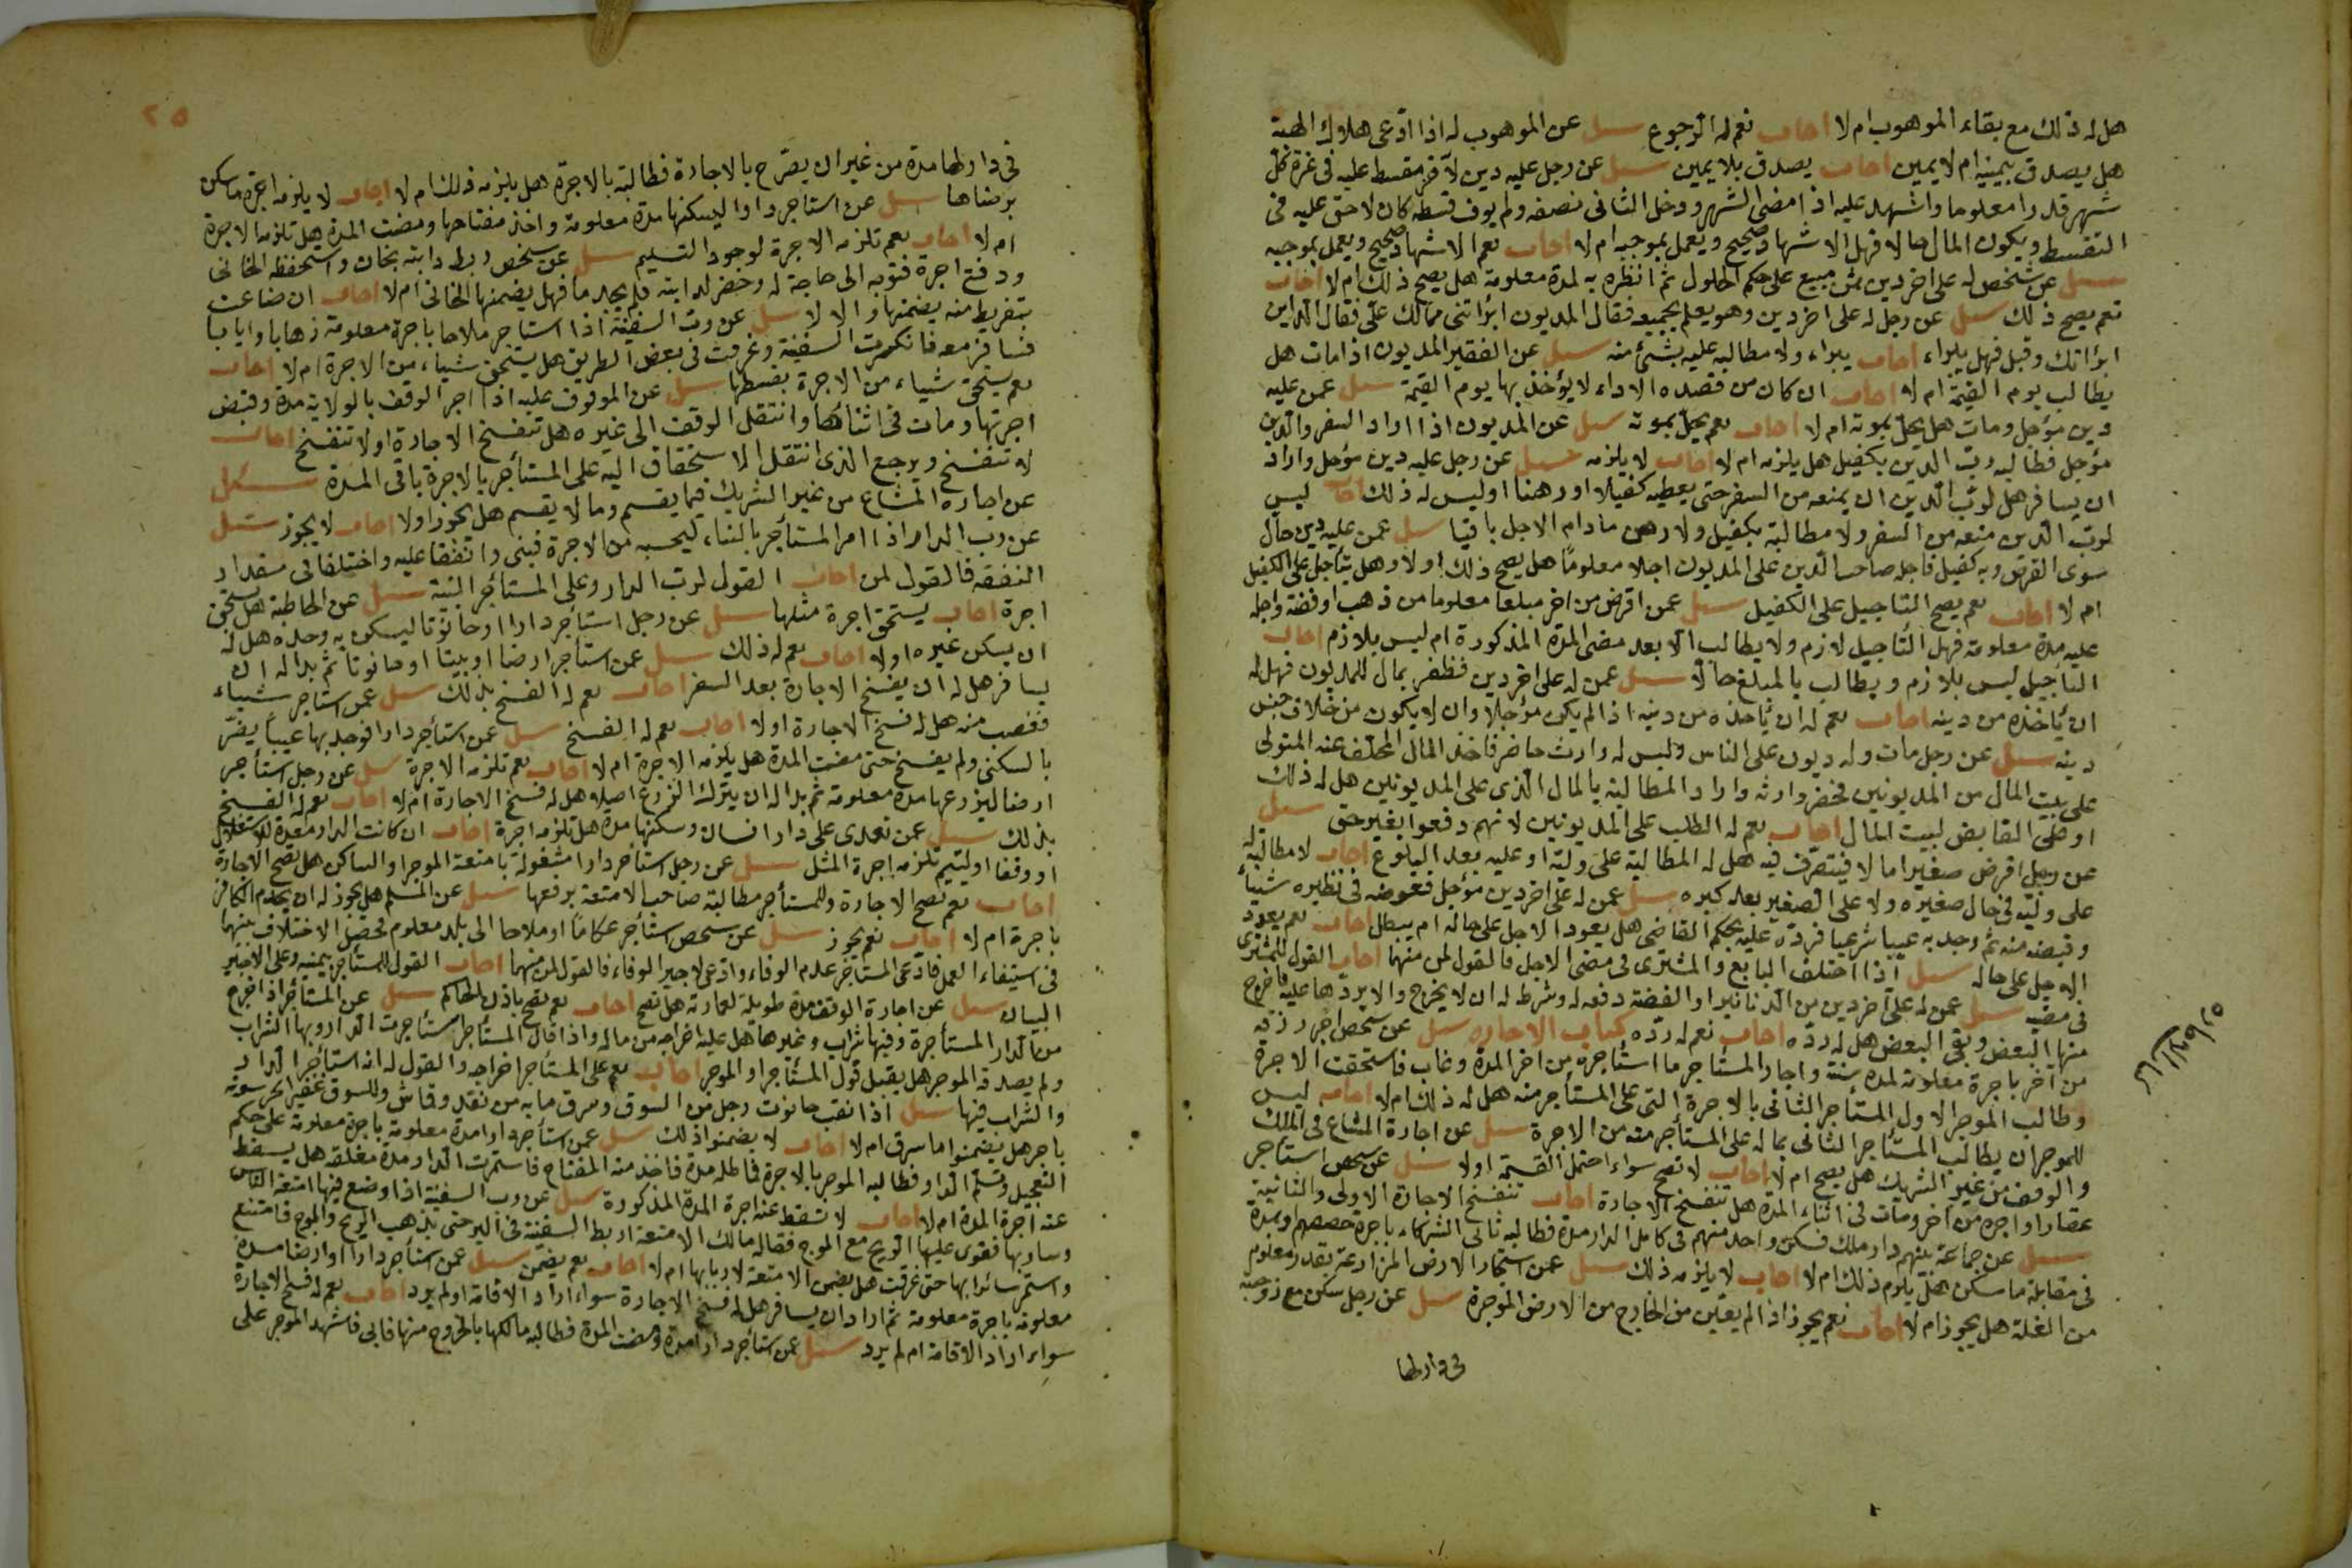 هل له ذلك مع بقاء الموهوب ام لا اجاب نعم له الرجوع سئل عن الموهوب له اذا ادعى هلاك الهبة
هل يصدق بيمينه ام لا يمين اجاب يصدق بلا يمين سئل عن رجل عليه دين لآخر مقسط عليه فى غرة كل
شهر قدرا معلوما واشهد عليه اذا مضى الشهر ودخل الثانى نصفه ولم يوف قسطه كان لا حق عليه فى
التقسيط ويكون المال حالا فهل الاشهاد صحيح ويعمل بموجبه ام لا اجاب نعم الاشهاد صحيح ويعمل بموجبه
سئل عن شخص له على اخر دين ثمن مبيع على حكم الحلول ثم انظره به لمدة معلومة هل يصح ذلك ام لا اجاب
نعم يصح ذلك سئل عن رجل له على اخر دين وهو يعلم بجميعه فقال المديون ابرأتنى مما لك علىّ فقال الداين
ابرأتك وقبل فهل يبراء اجاب يبراء ولا مطالبه عليه بشئ منه سئل عن الفقير المديون اذا مات هل
يطالب يوم القيمة ام لا اجاب ان كان من قصده الاداء لا يؤخذ بها يوم القيمة سئل عمن عليه
دين مؤجل ومات هل يحل بموته ام لا اجاب نعم يحل بموته سئل عن المديون اذا اراد السفر والدين
مؤجل فطالبه رب الدين بكفيل هل يلزمه ام لا اجاب لا يلزمه سئل عن رجل عليه دين مؤجل واراد
ان يسافر هل لرب الدين ان يمنعه من السفر حتى يعطيه كفيلا او رهنا او ليس له ذلك اجاب ليس
لرب الدين منعه من السفر ولا مطالبة بكفيل ولا رهن مادام الاجل باقيا سئل عمن عليه دين حال
سوى القرض وبه كفيل فاجله صاحب الدين على المديون اجلا معلومًا هل يصح ذلك اولا وهل يتأجل على الكفيل
ام لا اجاب نعم يصح التاجيل على الكفيل سئل عمن اقرض من اخر مبلغا معلوما من ذهب او فضة واجله
عليه مدة معلومة فهل التاجيل لازم ولا يطالب الا بعد مضى المدة المذكورة ام ليس بلازم اجاب
التاجيل ليس بلازم ويطالب بالمبلغ حالًا سئل عمن له على اخر دين فظفر بمال للمديون فهل له
ان يأخذه من دينه اجاب نعم له ان يأخذه من دينه اذا لم يكن مؤجلا وان لا يكون من خلاف جنس
دينه سئل عن رجل مات وله ديون على الناس وليس له وارث حاضر فاخذ المال المخلف عنه المتولى
على بيت المال من المديونين فحضر وارثه واراد المطالبة بالمال الذى على المديونين هل له ذلك
او على القابض لبيت المال اجاب نعم له الطلب على المديونين لانهم دفعوا بغير حق سئل
عن رجل اقرض صغيرا مالا فيتصرف فيه هل له المطالبة على وليه او عليه بعد البلوغ اجاب لا مطالبة له
على وليه فى حال صغيره ولا على الصغير بعد كبره سئل عمن له على اخر دين مؤجل فعوضه فى نظيره شيأ
وقبضه منه ثم وجد به عيبا شرعيا فرده عليه بحكم القاضى هل يعود الاجل على حاله ام يبطل اجاب نعم يعود
الاجل على حاله سئل اذا اختلف البايع والمشترى فى مضى الاجل فالقول لمن منهما اجاب القول للمشترى
فى مضيه سئل عمن له على آخر دين من الدنانير او الفضة دفعه له وشرط له ان لا يخرج والا يردها عليه فاخرج
منها البعض وبقى البعض هل له رده اجاب نعم له رده كتاب الاجاره سئل عن شخص اجر رزقه
من آخر باجرة معلومة لمدة سنة واجار المستأجر ما استأجره من اخر المدة وغاب فاستحقت الاجرة
وطالب الموجر الاول المستأجر الثانى بالاجرة التى على المستأجر منه هل له ذلك ام لا اجاب ليس
للموجر ان يطالب المستأجر الثانى بما له على المستأجر منه من الاجرة سئل عن اجارة المشاع فى الملك
والوقف من غير الشريك هل يصح ام لا اجاب لا تصح سواء احتمل القسمة اولا سئل عن شخص استأجر
عقارا واجره من اخر ومات فى اثناء المدة هل تنفسخ الاجارة اجاب تنفسخ الاجارة الاولى والثانية
سئل عن جماعة بينهم دار ملك فسكن واحد منهم فى كامل الدار مدة فطالبه ثانى الشركاء باجرة حصصهم ومدة
فى مقابلة ما سكن هل يلزم ذلك ام لا اجاب لا يلزمه ذلك سئل عمن استجار الارض المزارعة بقدر معلوم
من الغلة هل يجوز ام لا اجاب نعم يجوز اذا لم يعين من الخارج من الارض الموجرة سئل عن رجل سكن مع زوجته
فى دارلها
٢٥
فى دارلها مدة من غير ان يصرح بالاجارة فطالبته بالاجرة هل يلزمه ذلك ام لا اجاب لا يلزمه اجرة ما سكن
برضاها سئل عن استاجر دارا ليسكنها مدة معلومة واخذ مفتاحها ومضت المدة هل تلزمه الاجرة
ام لا اجاب نعم تلزمه الاجرة لوجود التسليم سئل عن شخص ربط دابته بخان واستحفظه الخانى
ودفع اجرة فتوجه الى حاجة له وحضر لدابته فلم يجدها فهل يضمنها الخانى ام لا اجاب ان ضاعت
بتفريط منه يضمنها والا لا سئل عن رب السفينة اذا استاجر ملاحا باجرة معلومة ذهابا وايابا
فسافر معه فانكسرت السفينة وغرقت فى بعض الطريق هل يستحق شياء من الاجرة ام لا اجاب
نعم يستحق شياء من الاجرة بقسطها سئل عن الموقوف عليه اذا اجر الوقف بالولاية مدة وقبض
اجرتها ومات فى اثنائها وانتقل الوقف الى غيره هل تنفسخ الاجارة او لا تنفسخ اجاب
لا تنفسخ ويرجع الذى انتقل الاستحقاق اليه على المستأجر بالاجرة باقى المدة سئل
عن اجارة المشاع من غير الشريك فيما يقسم وما لا يقسم هل يجوز اولا اجاب لا يجوز سئل
عن رب الدار اذا امر المستأجر بالبناء ليحسبه من الاجرة فبنى واتفقا عليه واختلفا فى مقدار
النفقه فالقول لمن اجاب القول لرب الدار وعلى المستأجر البينة سئل عن الخاطبة هل تستحق
اجرة اجاب يستحق اجرة مثلها سئل عن رجل استأجر دارا او حانوتا ليسكن به وحده هل له
ان يسكن غيره اولا اجاب نعم له ذلك سئل عمن استأجر ارضا او بيتا او حانوتا ثم بدا له ان
يسافر هل له ان يفسخ الاجارة بعد السفر اجاب نعم له الفسخ بذلك سئل عمن استاجر شياء
فغصب منه هل له فسخ الاجارة اولا اجاب نعم له الفسخ سئل عمن استأجر دارا فوجد بها عيبا يضر
بالسكنى ولم يفسخ حتى مضت المدة هل يلزمه الاجرة ام لا اجاب نعم تلزمه الاجرة سئل عن رجل استأجر
ارضا ليزرعها مدة معلومة ثم بدا له ان يترك الزرع اصلا هل له فسخ الاجارة ام لا اجاب نعم له الفسخ
بذلك سئل عمن تعدى على دار انسان وسكنها مدة هل تلزمه اجرة اجاب ان كانت الدار معدة للاستغلال
او وقفا او ليتيم تلزمه اجرة المثل سئل عن رجل استأجر دارا مشغولة بامتعة الموجر او الساكن هل تصح الاجارة
اجاب نعم تصح الاجارة وللمستأجر مطالبة صاحب الامتعة برفعها سئل عن المسلم هل يجوز له ان يخدم الكافر
باجرة ام لا اجاب نعم يجوز سئل عن شخص استأجر عكامًا او ملاحا الى بلد معلوم فحصل الاختلاف بينهما
فى استيفاء العمل فادعى المستأجر عدم الوفاء وادعى الاجير الوفاء فالقول لمن منهما اجاب القول للمستأجر بيمينه وعلى الاجير
البيان سئل عن اجارة الوقف مدة طويلة لعمارته هل تصح اجاب نعم تصح باذن الحاكم سئل عن المستأجر اذا خرج
من الدار المستأجرة وفيها تراب وغيرها هل عليه اخراجه من ماله واذا قال المستأجر استأجرت الدار وبها التراب
ولم يصدقه الموجر هل يقبل قول المستأجر او الموجر اجاب نعم على المستأجر اخراجه والقول له انه استأجر الدار
والتراب فيها سئل اذا نقب حانوت رجل من السوق وسرق ما به من نقد وقماش وللسوق غفير الحرسونه
باجر هل يضمنوا ما سرق ام لا اجاب لا يضمنوا ذلك سئل عمن استأجر دارا مدة معلومة باجرة معلومة على حكم
التعجيل وتسلم الدار وطالبه الموجر بالاجرة فماطله مدة فاخذ منه المفتاح فاستمرت الدار مدة مغلقة هل يسقط
عنه اجرة المدة ام لا اجاب لا تسقط عنه اجرة المدة المذكورة سئل عن رب السفينة اذا وضع فيها امتعة الناس
وسار بها فقوى عليها الريح مع الموج فقال له مالك الامتعة اربط السفينة فى البر حتى يذهب الريح والموج فامتنع
واستمر سائرا بها حتى غرقت هل يضمن الامتعة لاربابها ام لا اجاب نعم يضمن سئل عمن استأجر دارا او ارضا مدة
معلومة باجرة معلومة ثم اراد ان يسافر هل له فسخ الاجارة سواء اراد الاقامة او لم يرد اجاب نعم له فسخ الاجارة
سواء اراد الاقامة ام لم يرد سئل عمن استأجر دارا مدة ومضت المدة فطالبه مالكها بالخروج منها فابى فاشهد الموجر على